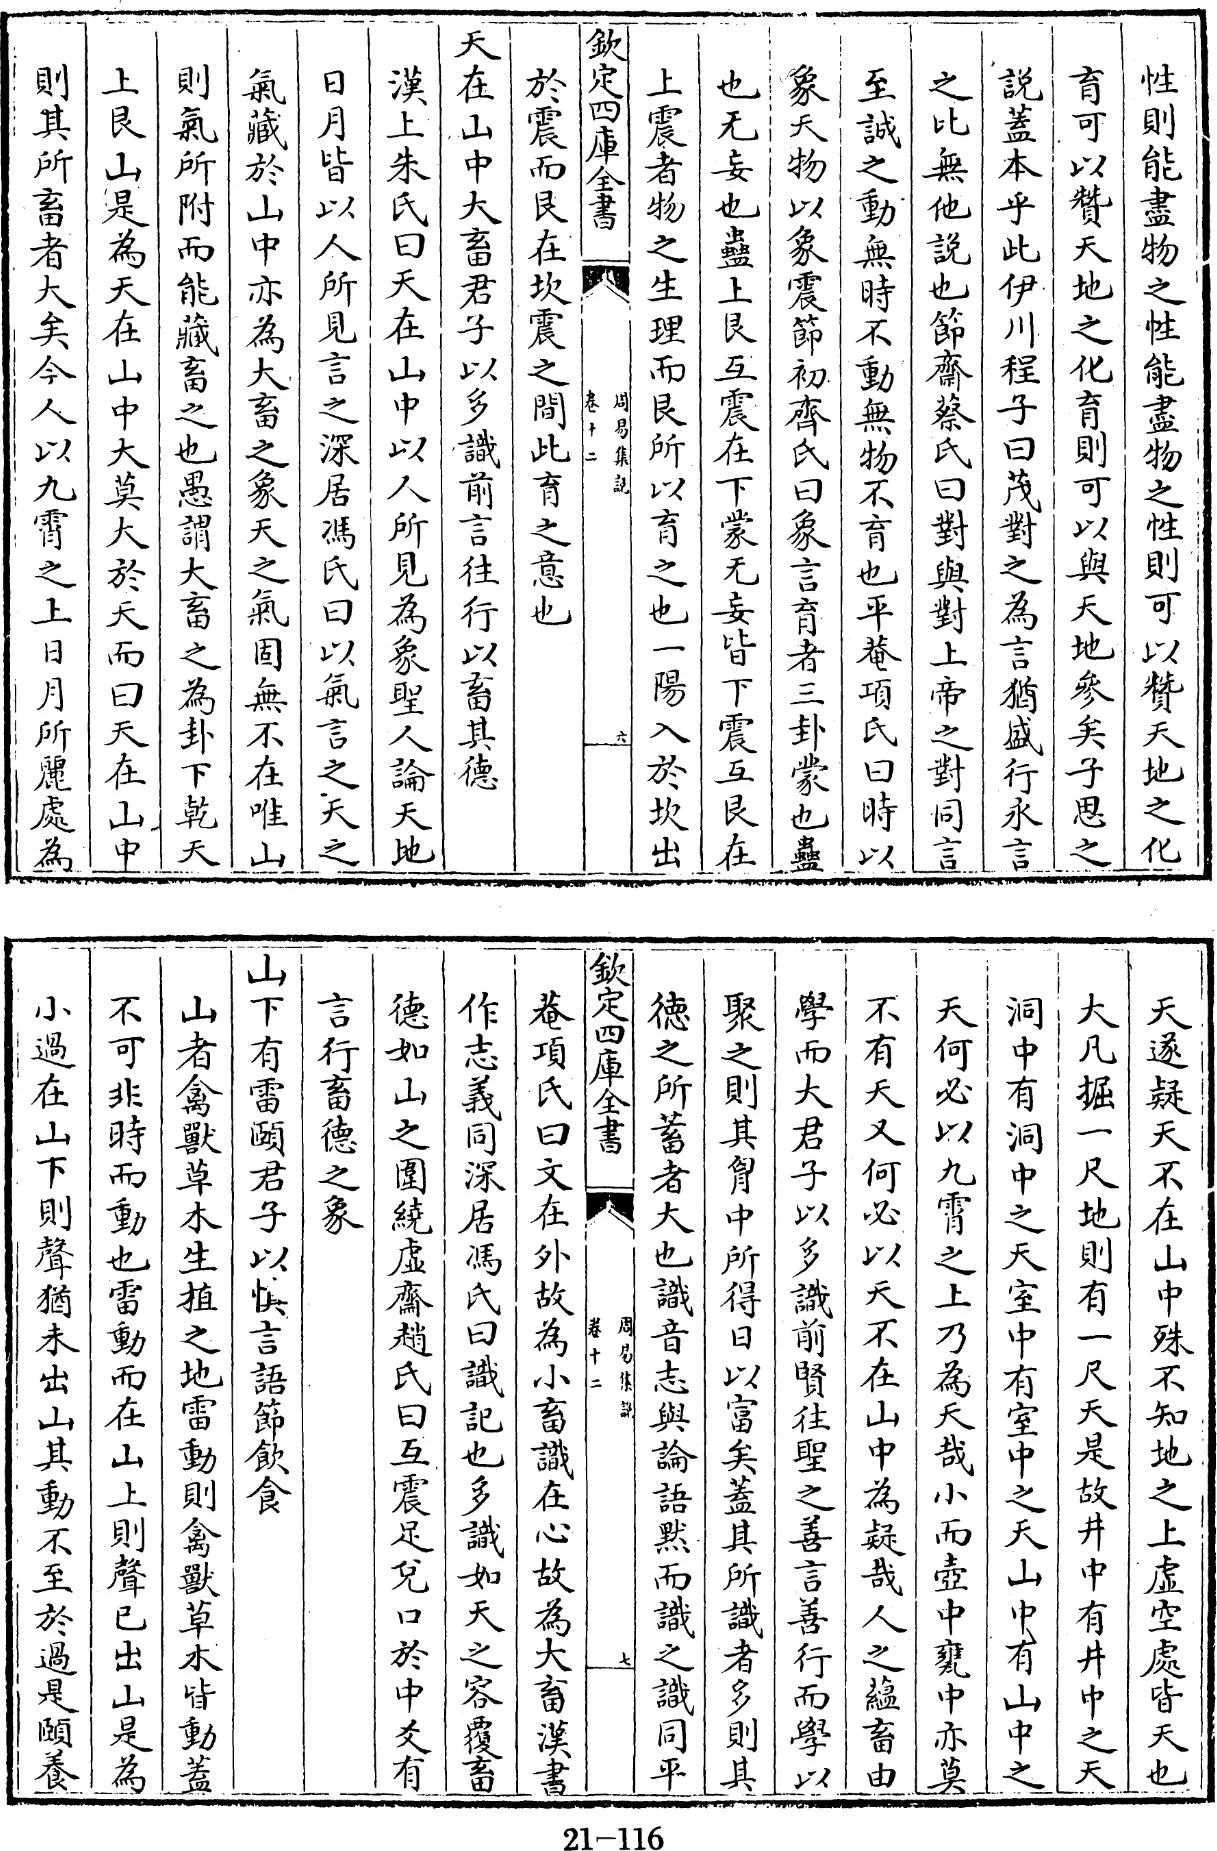 性則能盡物之性能盡物之性則可以贊天地之化
育可以贊天地之化育則可以與天地參矣子思之
説蓋本乎此伊川程子曰茂對之為言猶盛行永言
之比無他説也節齋蔡氏曰對與對上帝之對同言
至誠之動無時不動無物不育也平菴項氏曰時以
象天物以象震節初齊氏曰象言育者三卦蒙也蠱
也无妄也蠱上艮互震在下蒙无妄皆下震互艮在
上震者物之生理而艮所以育之也一陽入於坎出
欽定四庫全書
周易集説
卷十二
六
於震而艮在坎震之間此育之意也
天在山中大畜君子以多識前言往行以畜其德
漢上朱氏曰天在山中以人所見為象聖人論天地
日月皆以人所見言之深居馮氏曰以氣言之天之
氣藏於山中亦為大畜之象天之氣固無不在唯山
則氣所附而能藏畜之也愚謂大畜之為卦下乾天
上艮山是為天在山中大莫大於天而曰天在山中
則其所畜者大矣今人以九霄之上日月所麗處為
天遂疑天不在山中殊不知地之上虛空處皆天也
大凡掘一尺地則有一尺天是故井中有井中之天
洞中有洞中之天室中有室中之天山中有山中之
天何必以九霄之上乃為天哉小而壺中甕中亦莫
不有天又何必以天不在山中為疑哉人之蘊畜由
學而大君子以多識前賢往聖之善言善行而學以
聚之則其胷中所得日以富矣蓋其所識者多則其
德之所蓄者大也識音志與論語默而識之識同平
欽定四庫全書
周易集説
卷十二
七
菴項氏曰文在外故為小畜識在心故為大畜漢書
作志義同深居馮氏曰識記也多識如天之容覆畜
德如山之圍繞虛齋趙氏曰互震足兌口於中爻有
言行畜德之象
山下有雷頤君子以慎言語節飲食
山者禽獸草木生植之地雷動則禽獸草木皆動蓋
不可非時而動也雷動而在山上則聲已出山是為
小過在山下則聲猶未出山其動不至於過是頤養
21-116